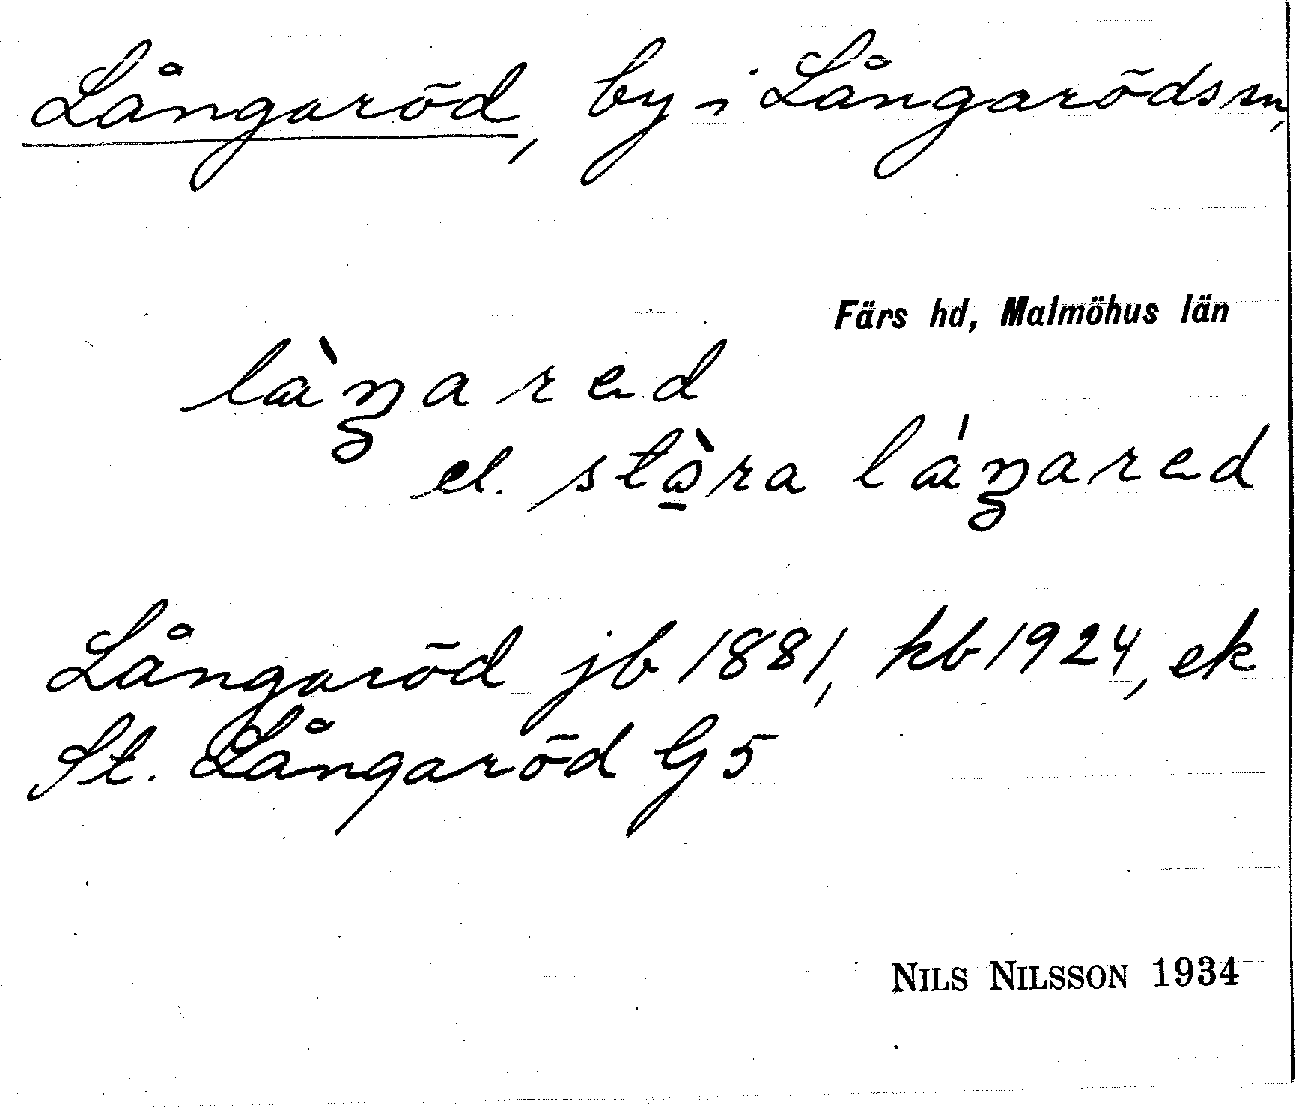 Långaröd, by i Långaröds sn,
Färs hd, Malmöhus län
làŋared
el. stòra láŋared
Långaröd jb 1881, kb 1924, ek
St. Långaröd G 5
NILS NILSSON 1934